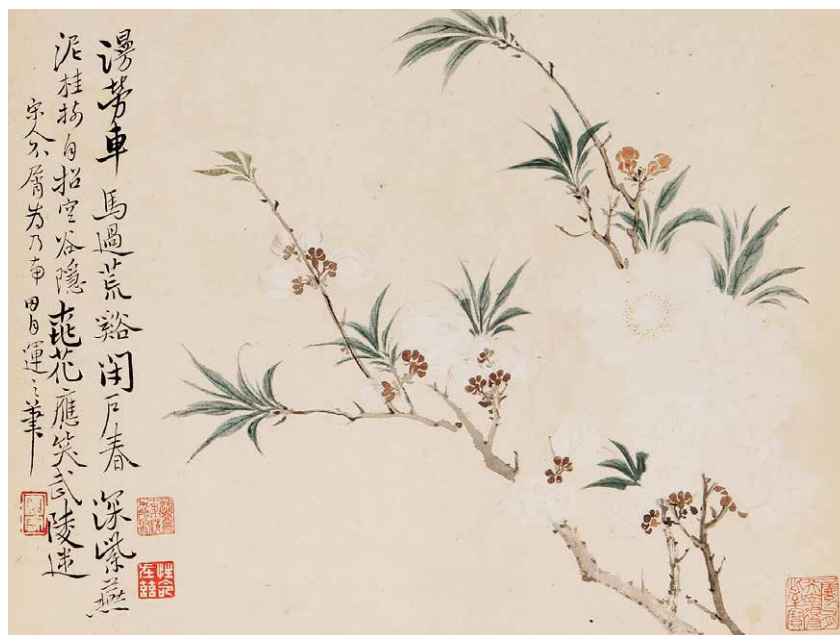 漫勞車馬過荒谿閉戶春深紫燕
泥桂樹自招空谷隱桃花應笑武陵迷
宋人不屑為乃南田自運之筆